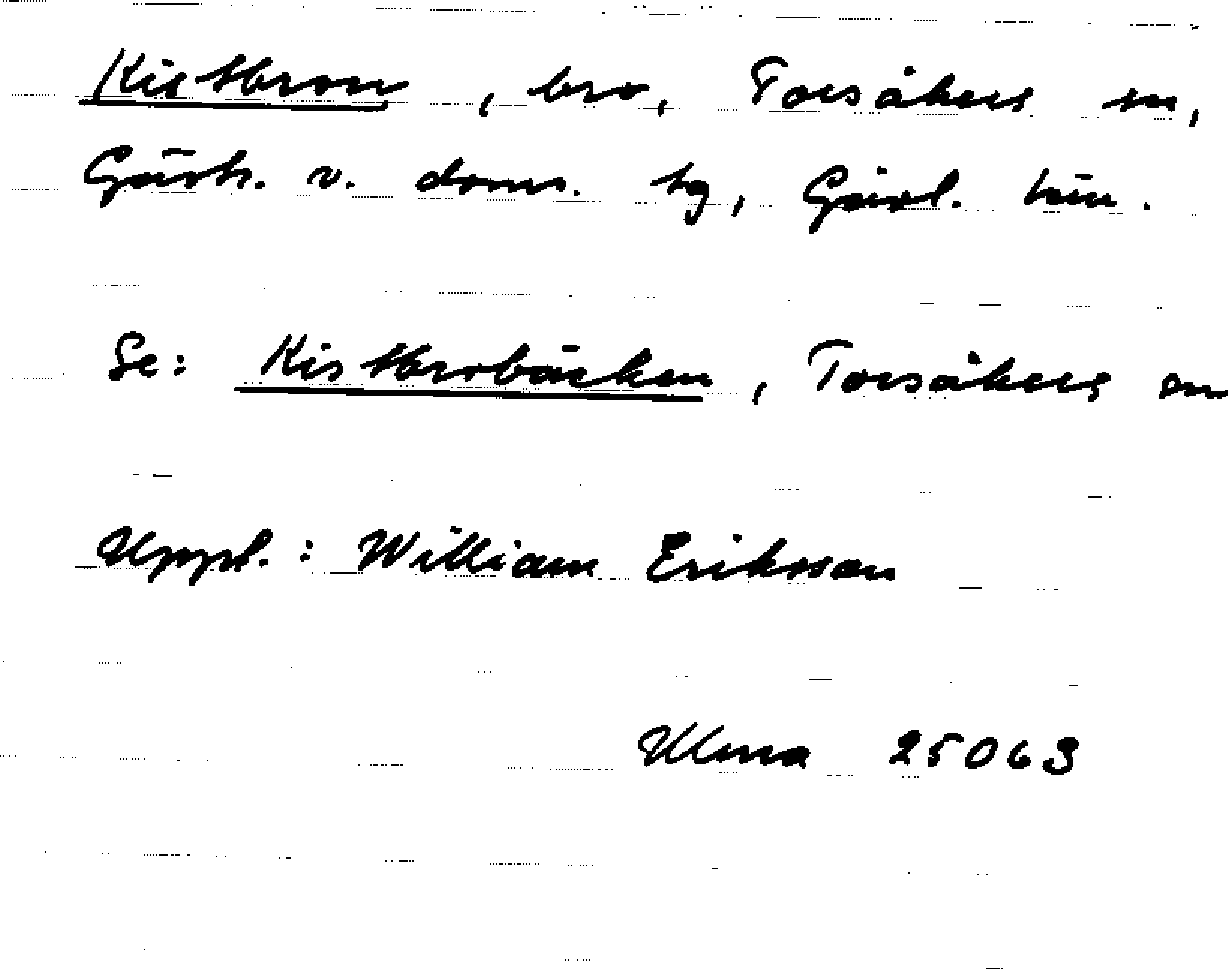 Kistbron, bro, Torsåkers sn,
Gästr. v. doms. tg, Gävl. län.
Se: Kistbrobäcken, Torsåkers sn
Uppl.: William Eriksson
Ulma 25063